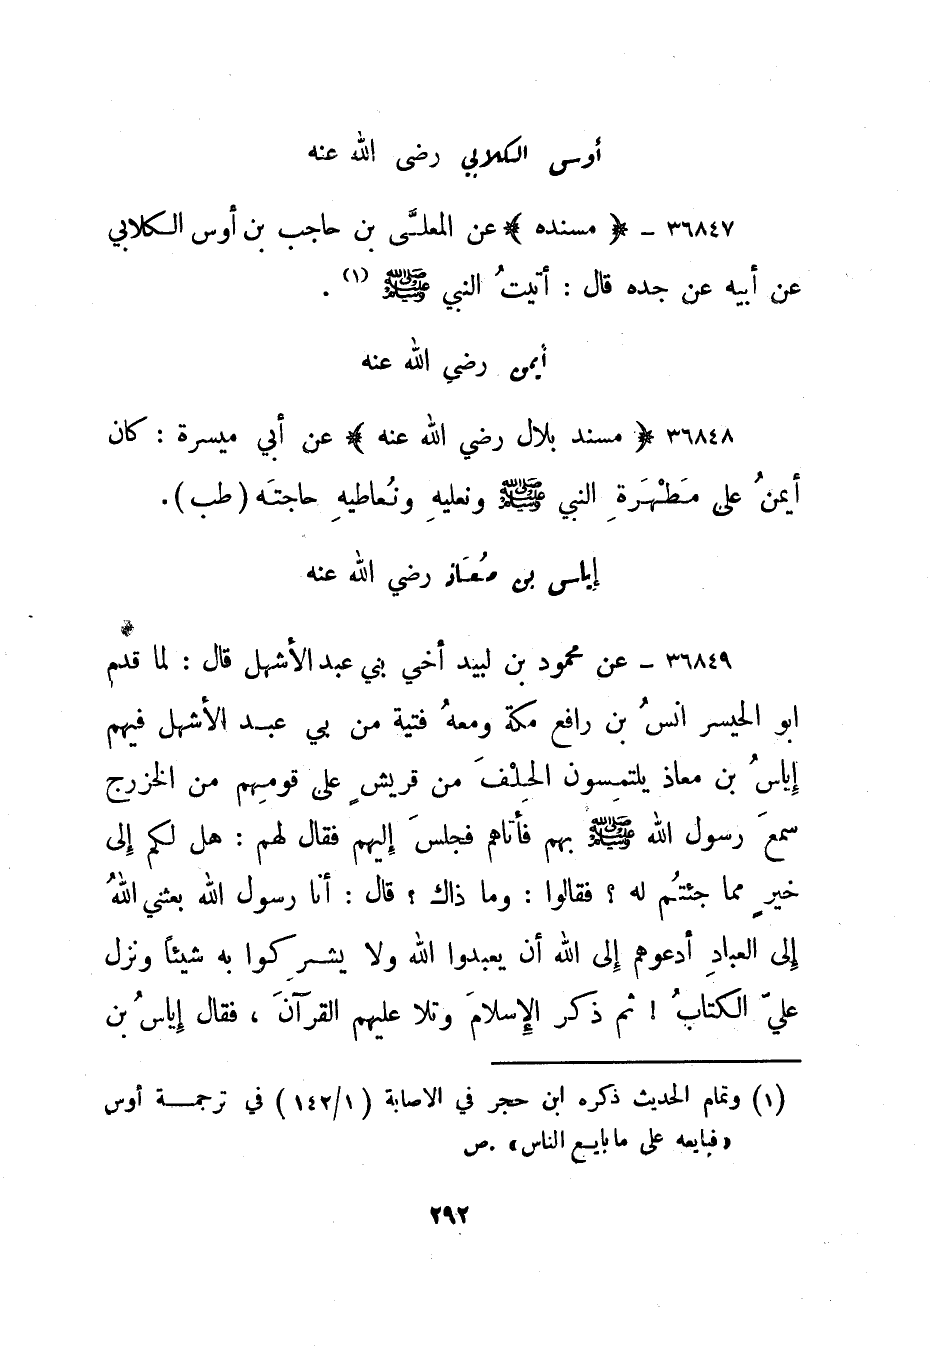 أوس الكلابي رضى الله عنه
٣٦٨٤٧ - ﴿ مسنده ﴾ عن المعلَّى بن حاجب بن أوس الكلابي
عن أبيه عن جده قال : أتيتُ النبي ﷺ (١) .
أيمن رضي الله عنه
٣٦٨٤٨ ﴿ مسند بلال رضي الله عنه ﴾ عن أبي ميسرة : كان
أيمنُ على مَطْهَرَةِ النبي ﷺ ونعليهِ ونُعاطيهِ حاجتَه (طب) .
إياس بن مُعَاذ رضي الله عنه
٣٦٨٤٩ - عن محمود بن لبيد أخي بني عبد الأشهل قال : لما قدم
ابو الحيسر انسُ بن رافع مكة ومعهُ فتية من بي عبد الأشهل فيهم
إياسُ بن معاذ يلتمِسون الحِلْفَ من قريشٍ على قومِهم من الخزرج
سمعَ رسول الله ﷺ بهم فأتاهم فجلسَ إليهم فقال لهم : هل لكم إلى
خيرٍ مما جئتُم له ؟ فقالوا : وما ذاك ؟ قال : أنا رسول الله بعثني اللهُ
إلى العبادِ أدعوهم إلى الله أن يعبدوا الله ولا يشرِكوا به شيئاً ونزل
عليّ الكتابُ ! ثم ذكر الإسلامَ وتلا عليهم القرآنَ ، فقال إياسُ بن
(١) وتمام الحديث ذكره ابن حجر في الاصابة (١٤٢/١) في ترجمة أوس
«فبايعه على ما بايع الناس» . ص
٢٩٢